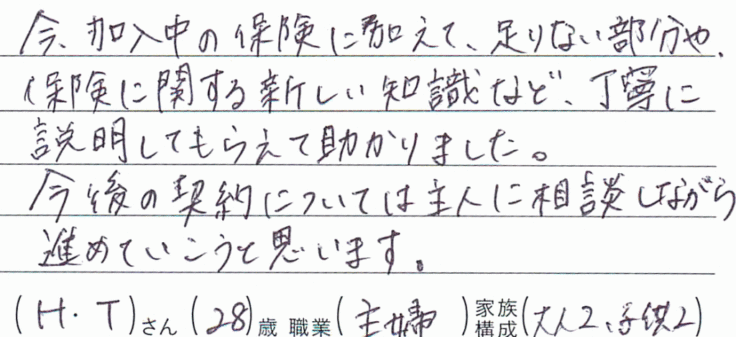 今、加入中の保険に加えて、足りない部分や、
保険に関する新しい知識など、丁寧に
説明してもらえて助かりました。
今後の契約については主人に相談しながら
進めていこうと思います。
(H・T)さん (28)歳 職業(主婦)家族構成(大人2、子供2)